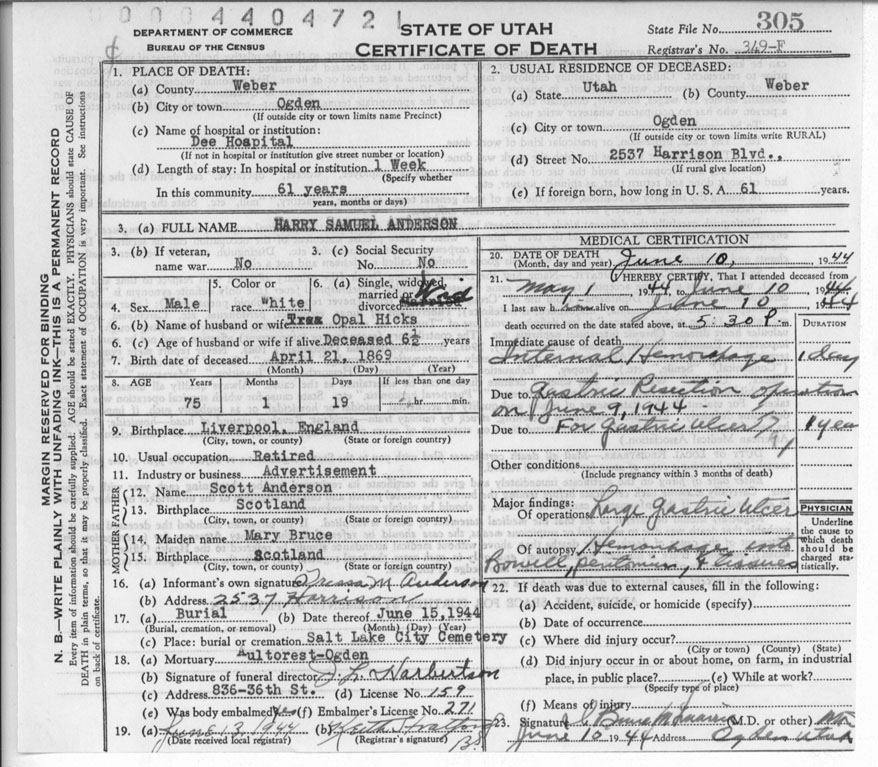 0004404721
DEPARTMENT OF COMMERCE
BUREAU OF THE CENSUS
STATE OF UTAH
CERTIFICATE OF DEATH
State File No. 305
Registrar's No. 349-F
MARGIN RESERVED FOR BINDING
N. B.—WRITE PLAINLY WITH UNFADING INK—THIS IS A PERMANENT RECORD
Every item of information should be carefully supplied. AGE should be stated EXACTLY. PHYSICIANS should state CAUSE OF
DEATH in plain terms, so that it may be properly classified. Exact statement of OCCUPATION is very important. See instructions
on back of certificate.
1. PLACE OF DEATH:
(a) County Weber
(b) City or town Ogden
(If outside city or town limits name Precinct)
(c) Name of hospital or institution:
Dee Hospital
(If not in hospital or institution give street number or location)
(d) Length of stay: In hospital or institution 1 Week
(Specify whether
In this community 61 years
years, months or days)
2. USUAL RESIDENCE OF DECEASED:
(a) State Utah (b) County Weber
(c) City or town Ogden
(If outside city or town limits write RURAL)
(d) Street No. 2537 Harrison Blvd.,
(If rural give location)
(e) If foreign born, how long in U. S. A. 61 years.
3. (a) FULL NAME HARRY SAMUEL ANDERSON
3. (b) If veteran, name war No
3. (c) Social Security No. No
4. Sex Male
5. Color or race White
6. (a) Single, widowed, married or divorced Wid
6. (b) Name of husband or wife Opal Hicks
6. (c) Age of husband or wife if alive Deceased 6½ years
7. Birth date of deceased April 21, 1869
(Month) (Day) (Year)
8. AGE Years Months Days If less than one day
75 1 19 hr. min.
9. Birthplace Liverpool, England
(City, town, or county) (State or foreign country)
10. Usual occupation Retired
11. Industry or business Advertisement
FATHER
12. Name Scott Anderson
13. Birthplace Scotland
(City, town, or county) (State or foreign country)
MOTHER
14. Maiden name Mary Bruce
15. Birthplace Scotland
(City, town, or county) (State or foreign country)
16. (a) Informant's own signature M. Anderson
(b) Address 2537 Harrison
17. (a) Burial (b) Date thereof June 15, 1944
(Burial, cremation, or removal) (Month) (Day) (Year)
(c) Place: burial or cremation Salt Lake City Cemetery
18. (a) Mortuary Aultorest-Ogden
(b) Signature of funeral director J. L. Harbertson
(c) Address 836-36th St. (d) License No. 159
(e) Was body embalmed yes (f) Embalmer's License No. 271
19. (a) June 13 1944 (b)
(Date received local registrar) (Registrar's signature)
MEDICAL CERTIFICATION
20. DATE OF DEATH
(Month, day and year) June 10, 1944
21. I HEREBY CERTIFY, That I attended deceased from
May 1 1944 to June 10 1944
I last saw him alive on June 10 1944
death occurred on the date stated above, at 5:30 P. m.
DURATION
Immediate cause of death
Internal Hemorrhage 1 day
Due to Gastric Resection operation
on June 9, 1944
Due to For Gastric Ulcer 1 year
Other conditions
(Include pregnancy within 3 months of death)
Major findings:
Of operations Large Gastric Ulcer
Of autopsy Hemorrhage into
Bowell, peritonium, & tissues
PHYSICIAN
Underline the cause to which death should be charged statistically.
22. If death was due to external causes, fill in the following:
(a) Accident, suicide, or homicide (specify)
(b) Date of occurrence
(c) Where did injury occur?
(City or town) (County) (State)
(d) Did injury occur in or about home, on farm, in industrial
place, in public place? (e) While at work?
(Specify type of place)
(f) Means of injury
23. Signature (M.D. or other) MD
June 10 1944 Address Ogden Utah